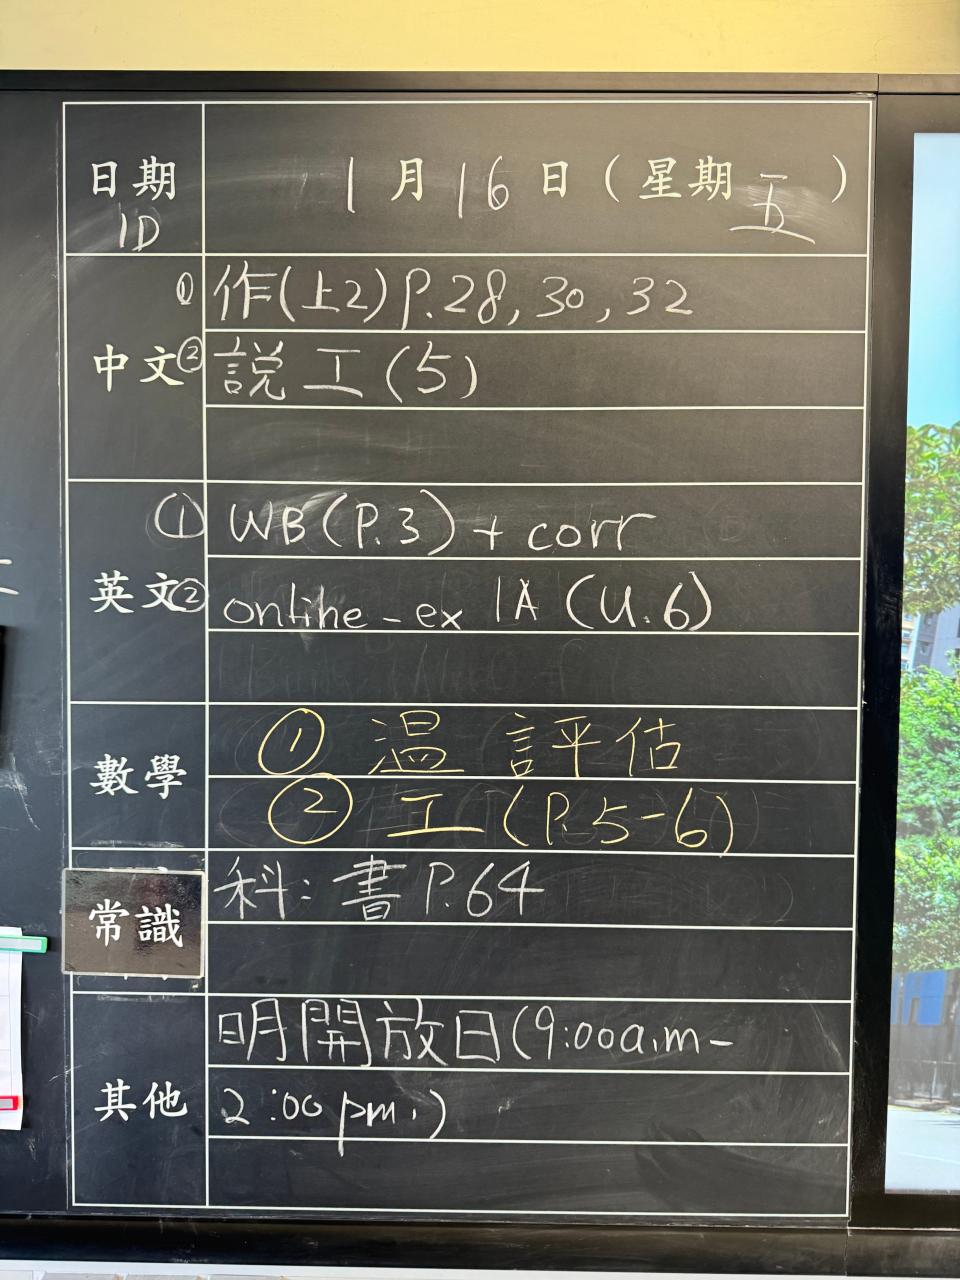 日期 1月16日(星期五)
1D
中文 ① 作(上2)P.28, 30, 32
② 説工(5)
英文 ① WB(P.3) + corr
② online-ex 1A (U.6)
數學 ① 溫 評估
② 工(P.5-6)
常識 科: 書P.64
其他 明開放日(9:00a.m-
2:00pm.)